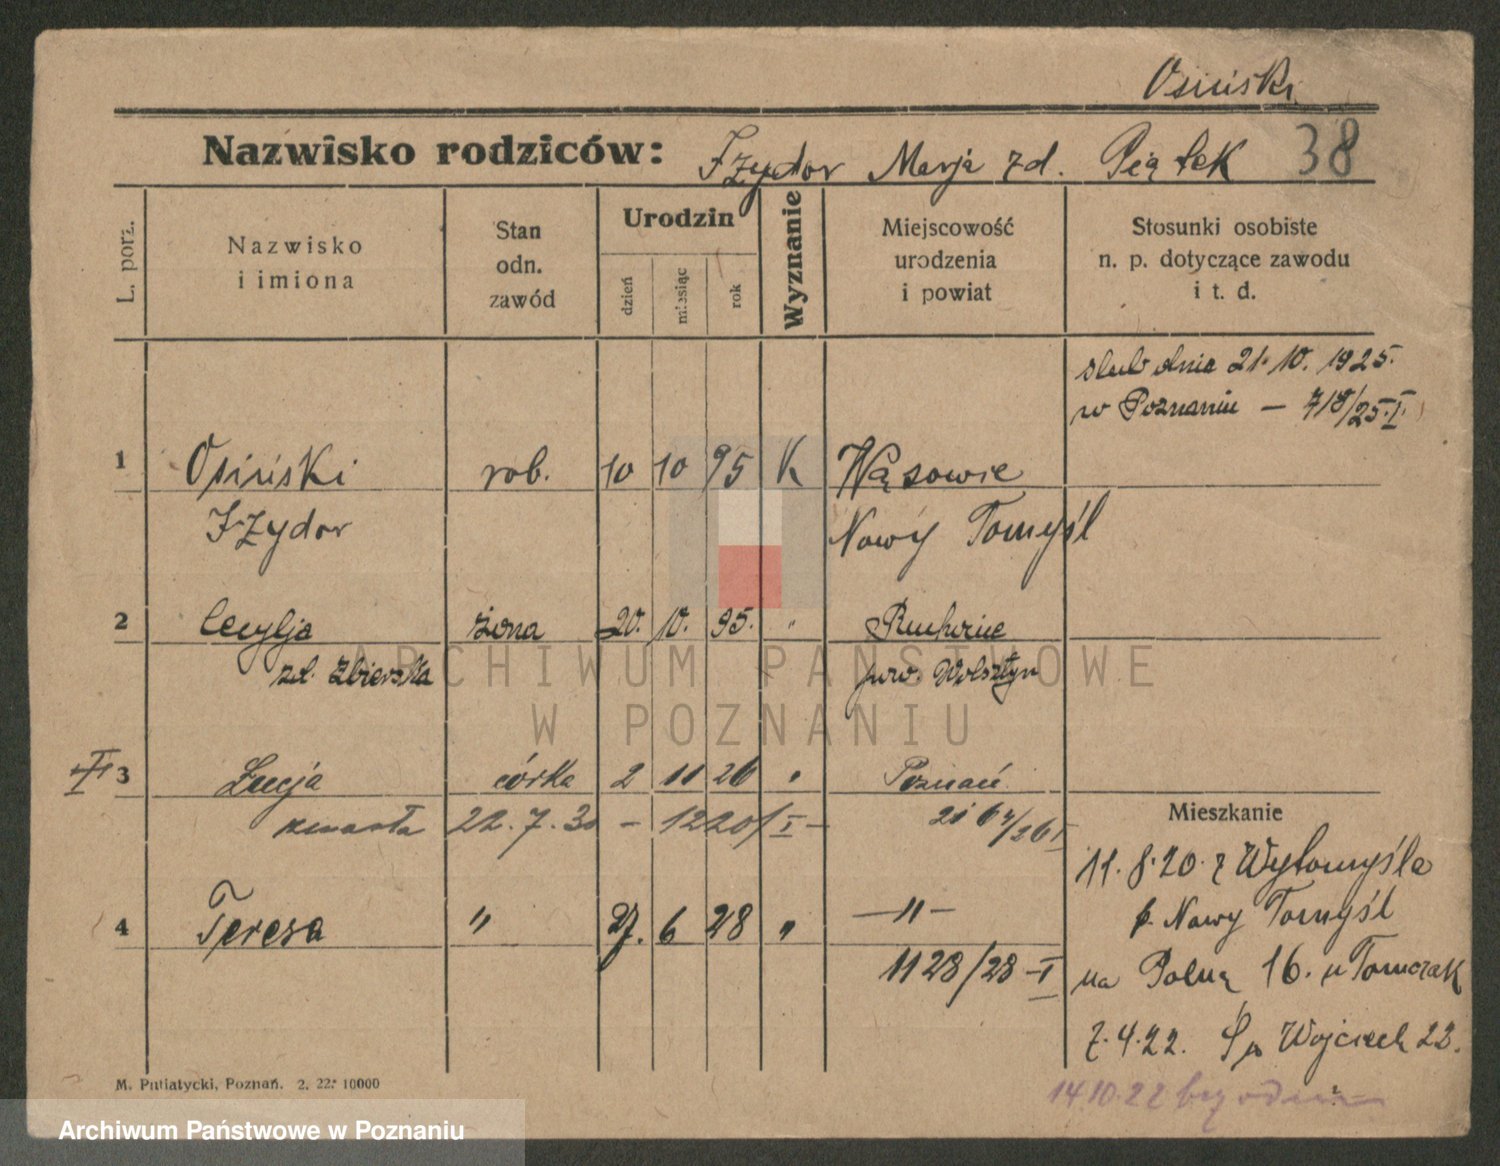 Osiński
Nazwisko rodziców: Izydor Marja zd. Piątek 38
L. porz.
Nazwisko
i imiona
Stan
odn.
zawód
Urodzin
dzień
miesiąc
rok
Wyznanie
Miejscowość
urodzenia
i powiat
Stosunki osobiste
n. p. dotyczące zawodu
i t. d.
slub dnia 21. 10. 1925.
w Poznaniu — 718/25.I.
1 Osiński rob. 10 10 95 K Wąsowie
Izydor Nowy Tomyśl
2 Cecylja żona 20. 10. 95. "
zd. Zbierska pow. Wolsztyn
I 3 Łucja córka 2 11 26 " Poznań
zmarła 22. 7. 30 – 1220/I – 2164/26 I
4 Teresa " 27. 6 28 " — " —
1128/28 – I
Mieszkanie
11. 8. 20. z Wytomyśla
p. Nowy Tomyśl
na Polną 16. u Tomczak
7. 4. 22. Św Wojciech 22.
14.10.22
M. Putiatycki, Poznań. 2. 22. 10000
ARCHIWUM PAŃSTWOWE
W POZNANIU
Archiwum Państwowe w Poznaniu